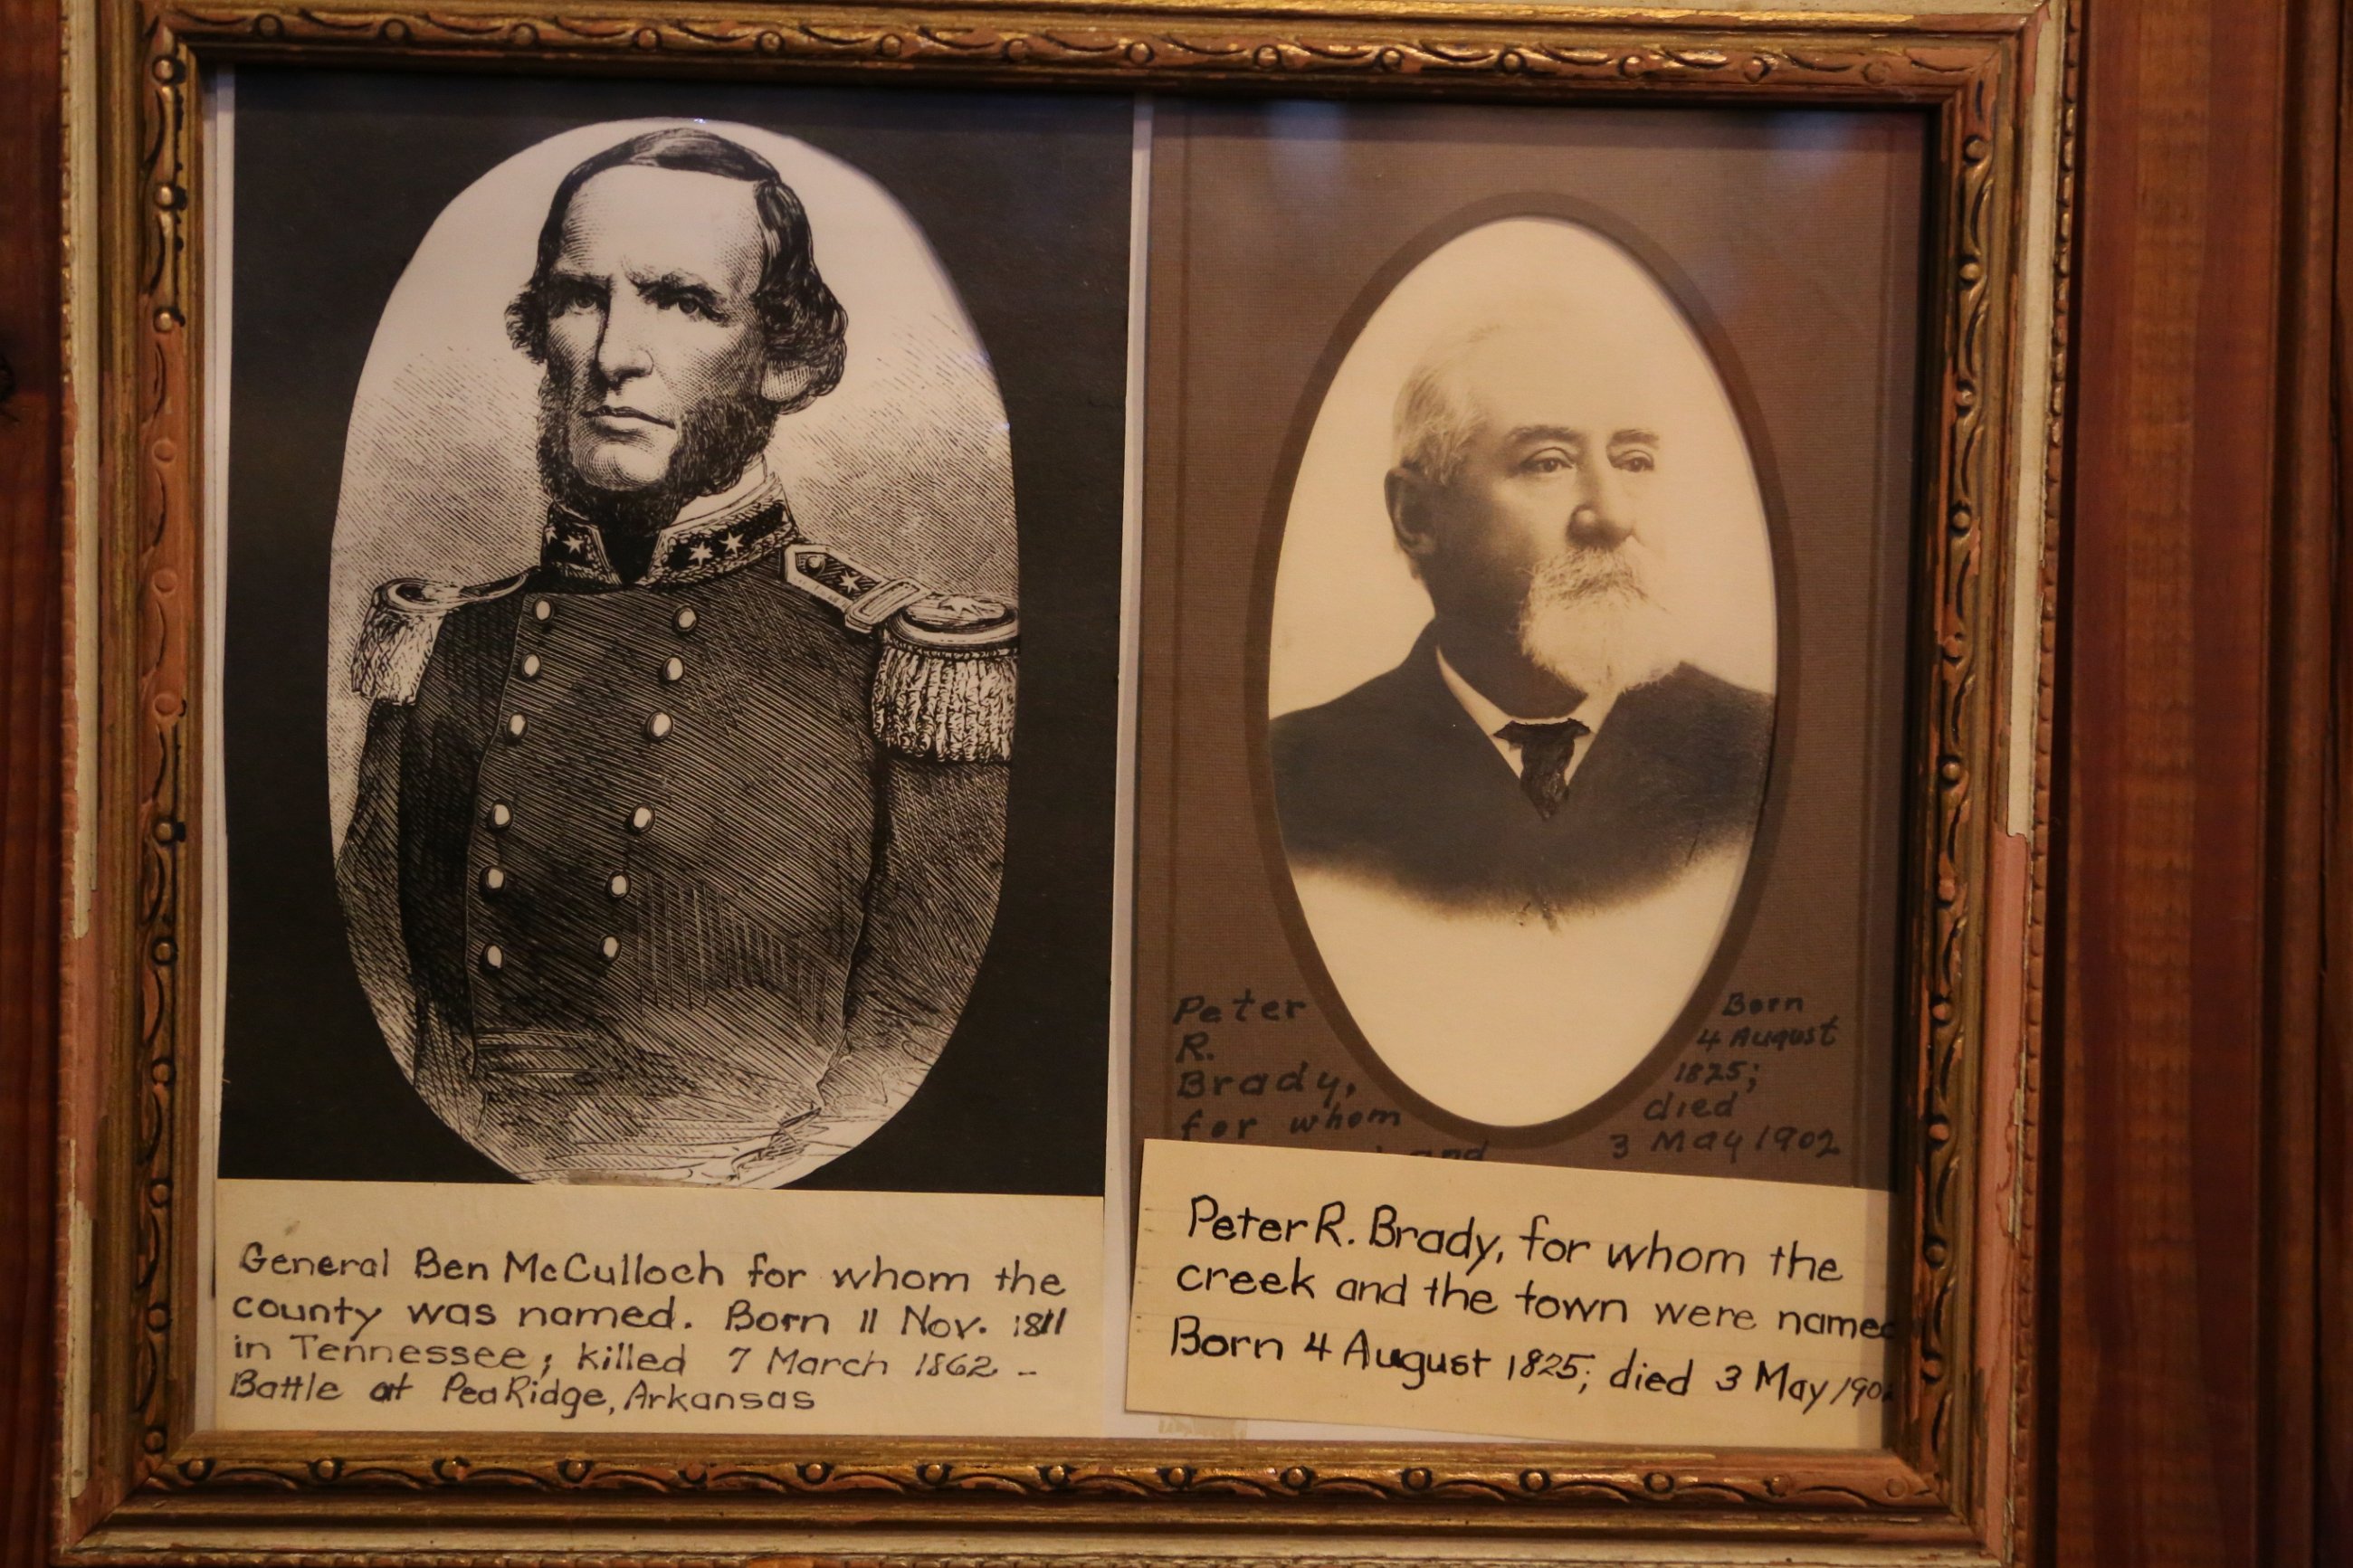 General Ben McCulloch for whom the
county was named. Born 11 Nov. 1811
in Tennessee; killed 7 March 1862 -
Battle at Pea Ridge, Arkansas
Peter
R.
Brady,
for whom
and
Born
4 August
1825;
died
3 May 1902
Peter R. Brady, for whom the
creek and the town were named
Born 4 August 1825; died 3 May 190